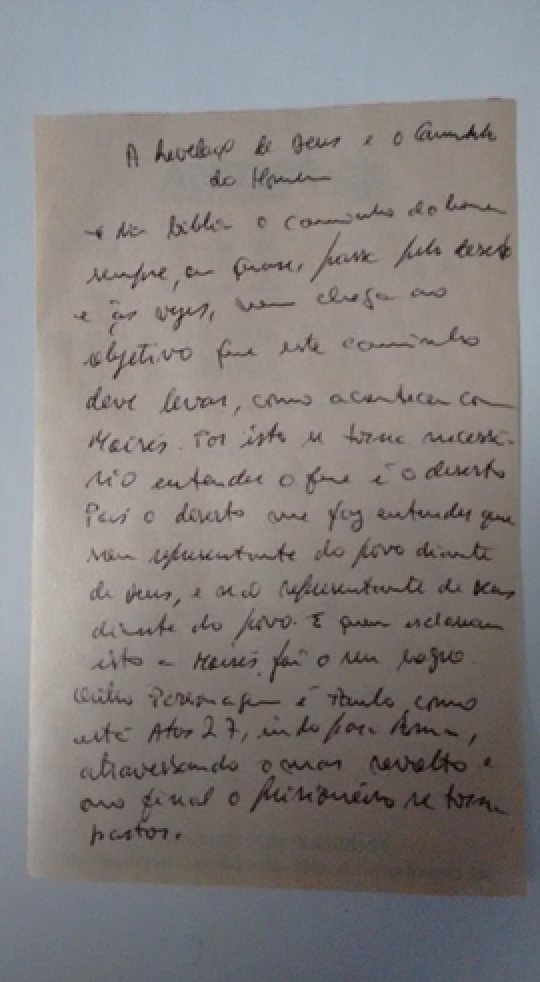 A Revelação de Deus e o Caminho
do Homem
→ Na Bíblia o caminho do homem
sempre, ou quase, passa pelo deserto
e às vezes, nem chega ao
objetivo que este caminho
deve levar, como aconteceu com
Moisés. Por isto se torna necessá-
rio entender o que é o deserto
Pois o deserto me faz entender que
sou representante do povo diante
de Deus, e sou representante de Deus
diante do povo. E quem esclareceu
isto a Moisés, foi o seu sogro.
Outro Personagem é Paulo, como
está Atos 27, indo para Roma,
atravessando o mar revolto e
ao final o prisioneiro se torna
pastor.